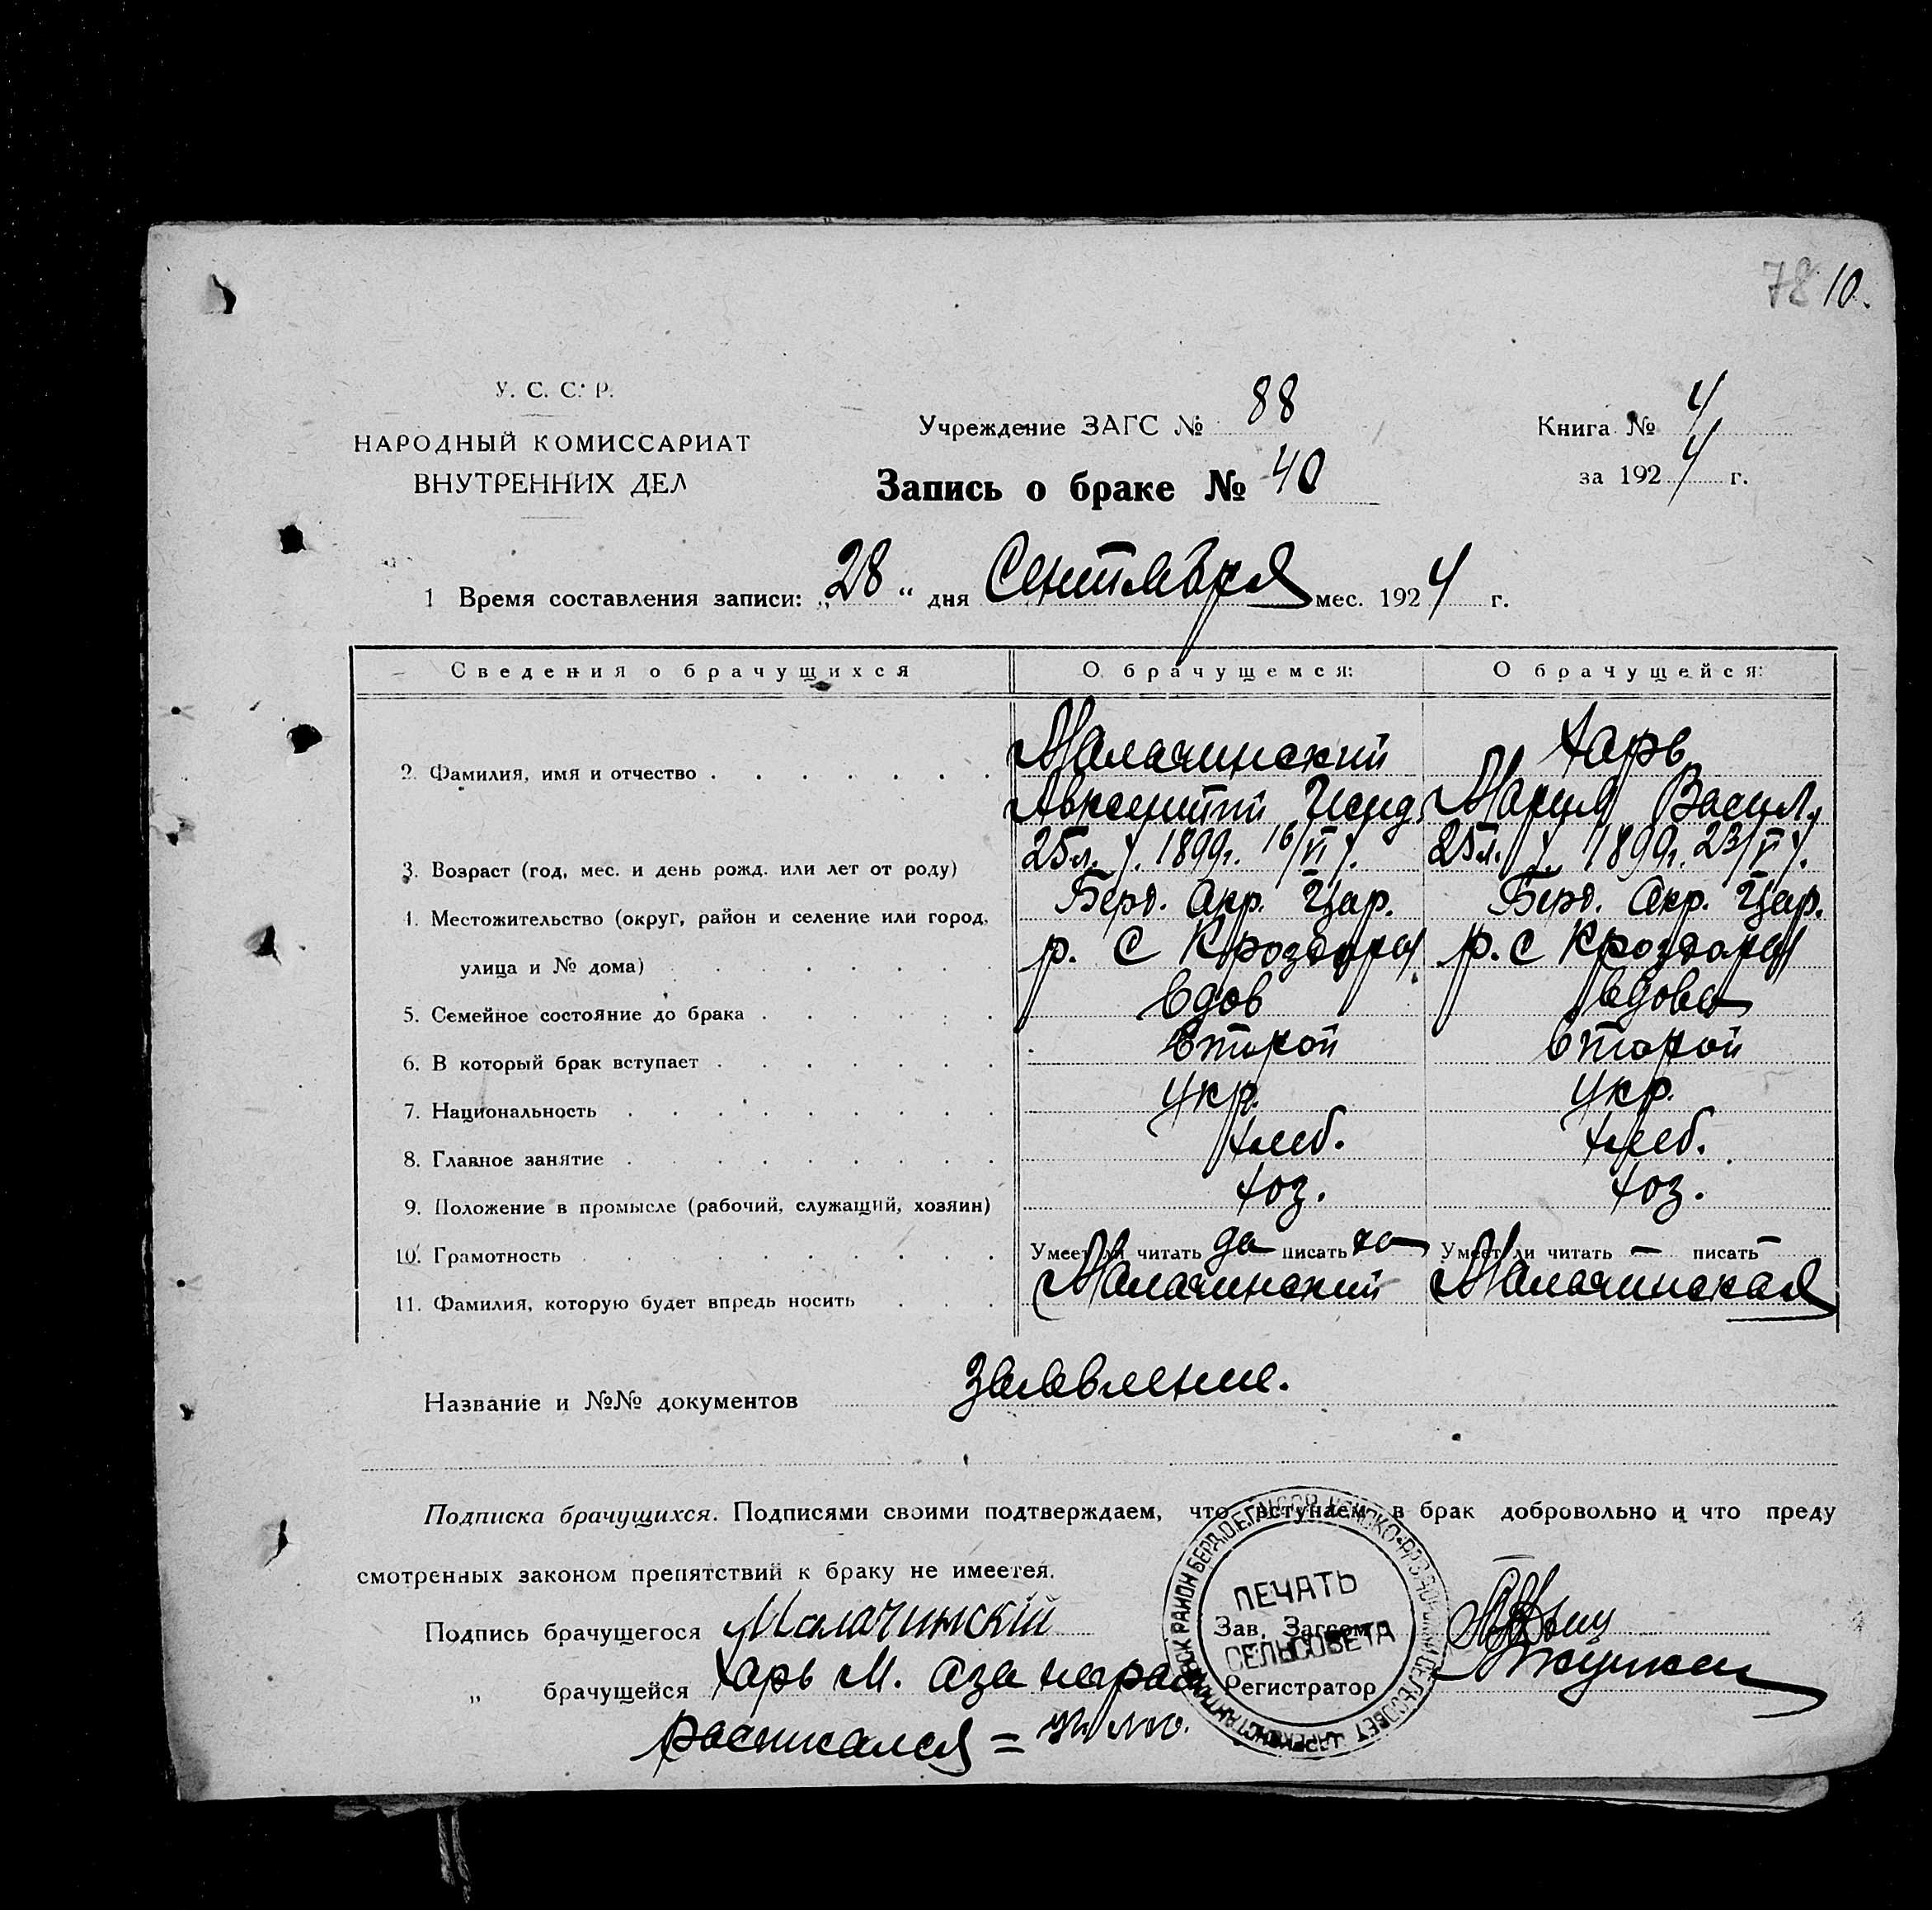 78 10.
У. С. С. Р.
НАРОДНЫЙ КОМИССАРИАТ
ВНУТРЕННИХ ДЕЛ
Учреждение ЗАГС № 88
Книга № 4
Запись о браке № 40
за 1924 г.
1 Время составления записи: „28“ дня Сентября мес. 1924 г.
Сведения о брачущихся О брачущемся: О брачущейся:
2. Фамилия, имя и отчество Малачинский Харь
Авксентий Исид. Мария Васил.
3. Возраст (год, мес. и день рожд. или лет от роду) 25 л. 1899 г. 16/VI 25 л. 1899 г. 23/VI
4. Местожительство (округ, район и селение или город, Берд. Окр. Цар. Берд. Окр. Цар.
улица и № дома) р. С р. С
5. Семейное состояние до брака вдов вдова
6. В который брак вступает второй второй
7. Национальность укр. укр.
8. Главное занятие хлеб. хлеб.
9. Положение в промысле (рабочий, служащий, хозяин) хоз. хоз.
10. Грамотность Умеет ли читать да писать да Умеет ли читать — писать —
11. Фамилия, которую будет впредь носить Малачинский Малачинская
Название и №№ документов Заявление.
Подписка брачущихся. Подписями своими подтверждаем, что вступаем в брак добровольно и что преду
смотренных законом препятствий к браку не имеется.
Подпись брачущегося Малачинскій
Зав. Загсом
„ брачущейся Харь М. а за неграм
Регистратор
расписался =
ПЕЧАТЬ
СЕЛЬСОВЕТА